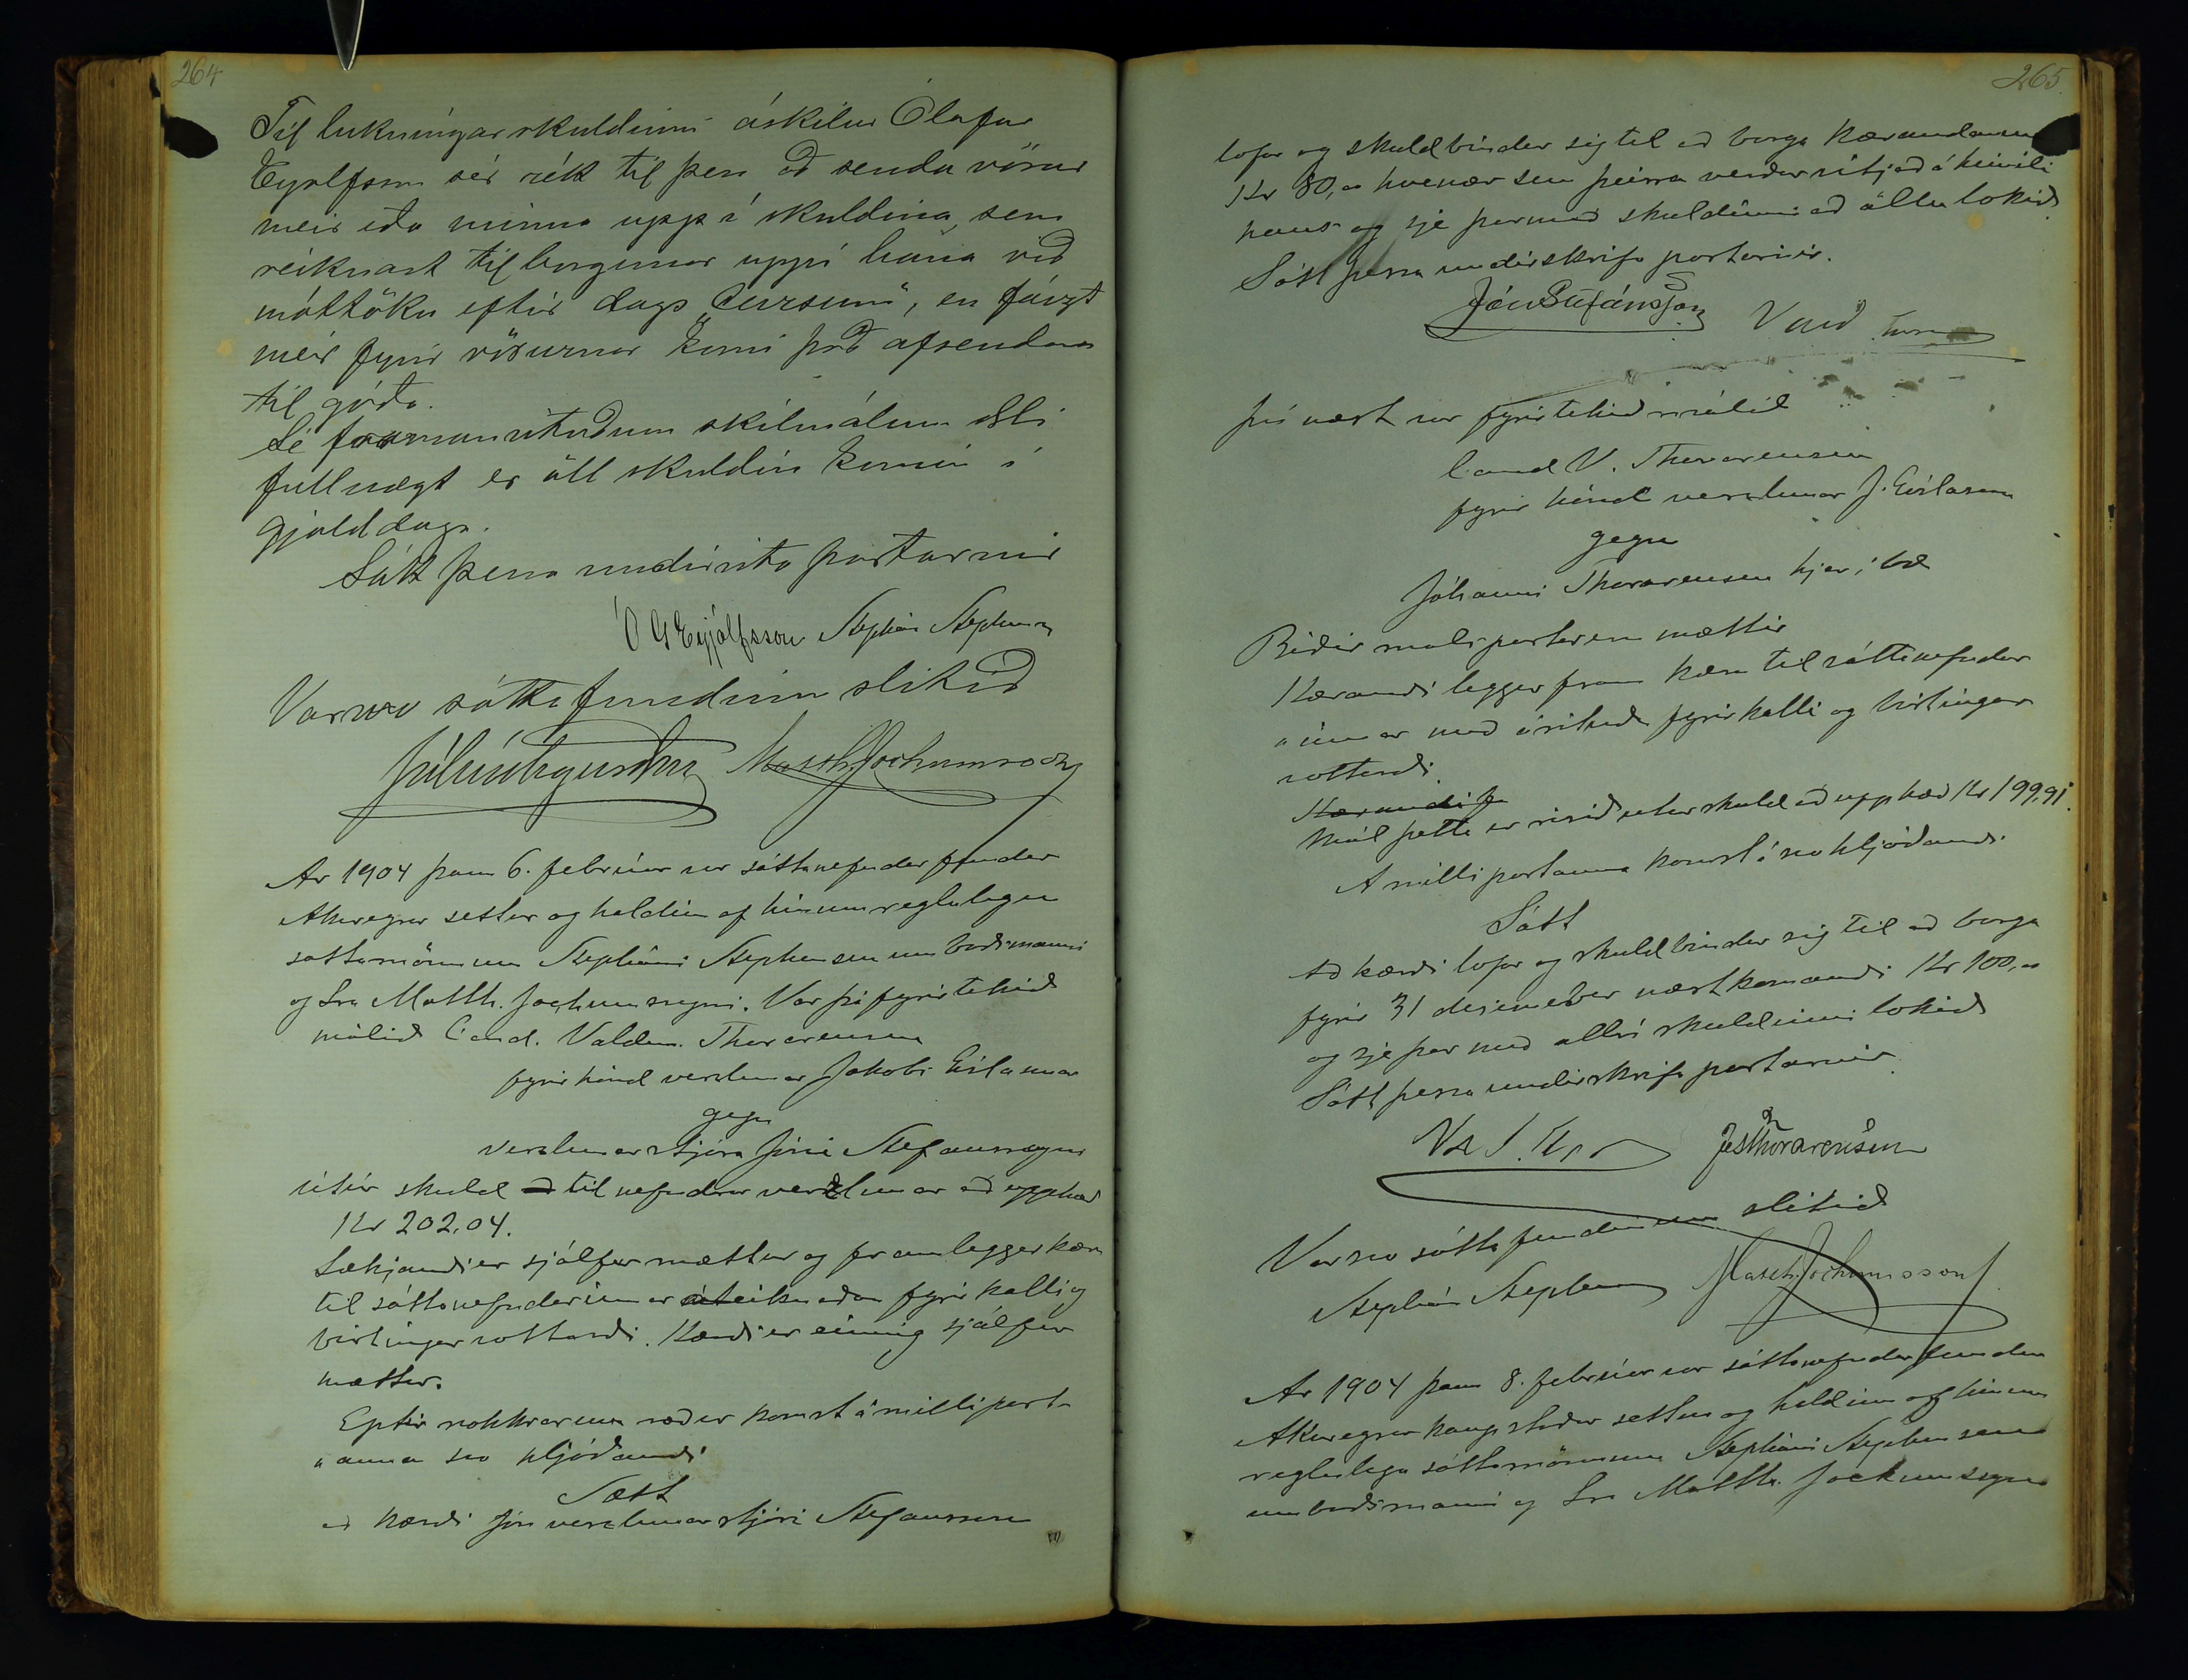 264
Til lukningar skuldinni áskilur Ólafur
Eyolfsson sér rétt til þess að senda vörur
meir eða minna upp í skuldina, sem
reiknast til borgunar uppí hana við
móttöku eftir dags "Cursum", en fáizt
meir fyrir vörurnar komi það afsendara
til góða.
Sé framanrituðum skilmálum ekki
fullnægt er öll skuldin komin í
gjalddaga.
Sátt þessa undirrita partarnir
Ó G Eyjólfsson Stephán Stephensen
Var svo sáttafundinum slitið
Matth. Jochumsson
Ar 1904 þann 6. febrúar var sáttanefndar fundur
Akureyrar settur og haldinn af hinum reglulegu
sattamönnum Stepháni Stephensen umboðsmanni
og Sra Matth. Jochumssyni. Var þá fyrirtekið
málið Cand. Valdem. Thorarensen
fyrir hönd verslunar Jakobs Gíslasonar
gegn
verslunarstjóra Jóni Stefanssyni
útúr skuld til nefndrar verzlunar að upphæð
Kr 202.04.
Sækjandi er sjálfur mættur og framleggur kæru
til sáttanefndarinnar áteiknaða fyrirkalli og
birtingarvottorði. Kærði er einnig sjálfur
mættur.
Eptir nokkrar umræður komst á milli part-
"anna svo hljóðandi
Sætt
að kærði Jón verslunarstjóri Stefansson
265.
lofar og skuldbindur sig til að borga kærandanum
Kr 80,00 hvenær sem þeirra verður vitjað á heimili
hans og sje þarmeð skuldinni að öllu lokið.
Sátt þessa undirskrifa partarnir.
Jón Stefánsson
því næst var fyrirtekið málið
Cand V. Thorarensen
fyrir hönd verslunar J. Gíslasonar
gegn
Jóhanni Thorarensen hjer í bæ
Báðir malspartar eru mættir
Kærandi leggur fram kæru til sáttanefndar
"innar með árituðu fyrirkalli og birtingar
vottorði.
Kærandi
Mál þetta er risið útur skuld að upphæð Kr 199,91.
A milli partanna komst á svohljóðandi
Sátt
Að kærði lofar og skuldbindur sig til að borga
fyrir 31 desember næstkomandi Kr 100,00
og sje þar með allri skuldinni lokið
Sátt þessa undirskrifa partarnir.
Thorarensen
Var svo sáttafundinum slitið
Stephán Stephensen Matth. Jochumsson
Ar 1904 þann 8. febrúar var sáttanefndar fundur
Akureyrar kaupstaðar settur og haldinn af hinum
reglulegu sáttamönnum Stepháni Stephensen
umboðsmanni og Sra Matth. Jochumssyni